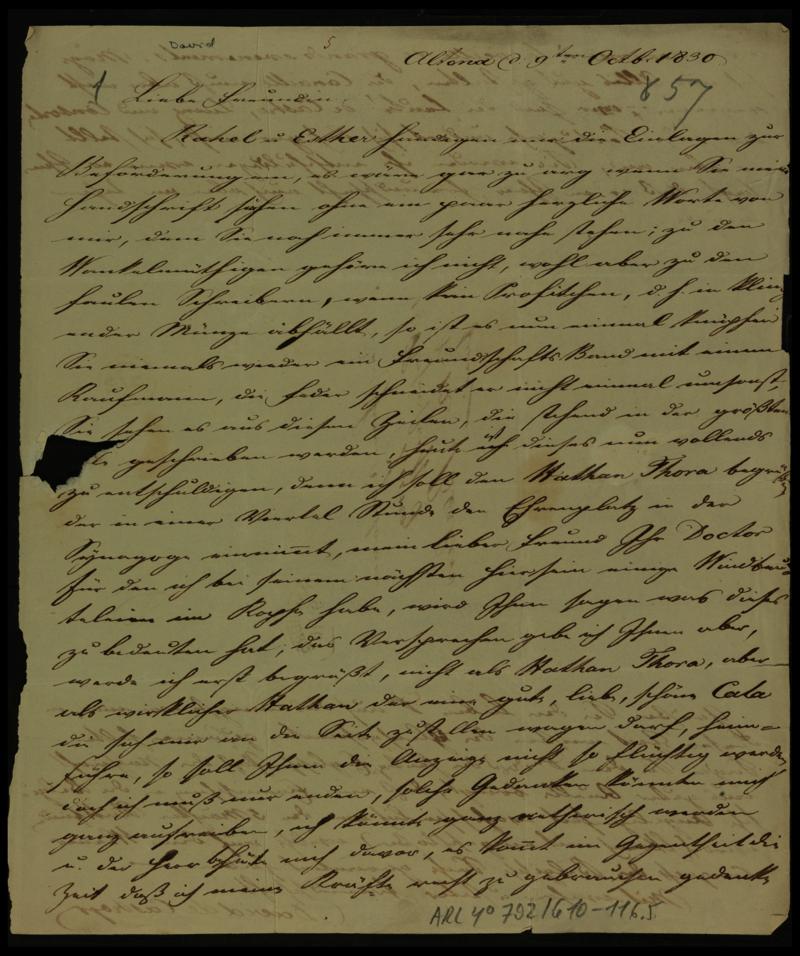 David 5
Altona d 9ten Octb. 1830
1 857
Liebe Freundin.
Rahel u Esther händigen mir die Einlagen zur
Beförderung ein, es wäre gar zu arg wenn Sie meine
Handschrift sähen ohne ein paar herzliche Worte von
mir, dem Sie noch immer sehr nahe stehen; zu den
Wankelmüthigen gehöre ich nicht, wohl aber zu den
faulen Schreibern, wenn kein Profitchen, d. h. in kling
ender Münze abfällt, so ist es nun einmal knüpfen
Sie niemals wieder ein Freundschafts Band mit einem
Kaufmann, die Feder schneidet er nicht einmal umsonst.
Sie sehen es aus diesen Zeilen, die stehend in der größten
geschrieben werden, heute ist dieses nun vollends
zu entschuldigen, denn ich soll den Hathan Thora begrüßen
der in einer Viertel Stunde den Ehrenplatz in der
Synagoge einnimmt, mein lieber Freund Ihr Doctor
für den ich bei seinem nächsten Hiersein einige Windbeu
teleien im Kopfe habe, wird Ihnen sagen was dieses
zu bedeuten hat, das Versprechen gebe ich Ihnen aber,
werde ich erst begrüßt, nicht als Hathan Thora, aber
als wirklicher Hathan der eine gute, liebe, schöne Cala
die sich mir an die Seite zu stellen wagen darf, heim=
führe, so soll Ihnen die Anzeige nicht so flüchtig werden
doch ich muß nur enden, solche Gedanken könnten mich
ganz aufreiben, ich könnte ganz aetherisch werden
u. der Herr behüte mich davor, es kommt im Gegentheil die
Zeit daß ich meine Kräfte recht zu gebrauchen gedenke
ARC 4o 792/G10-116.5